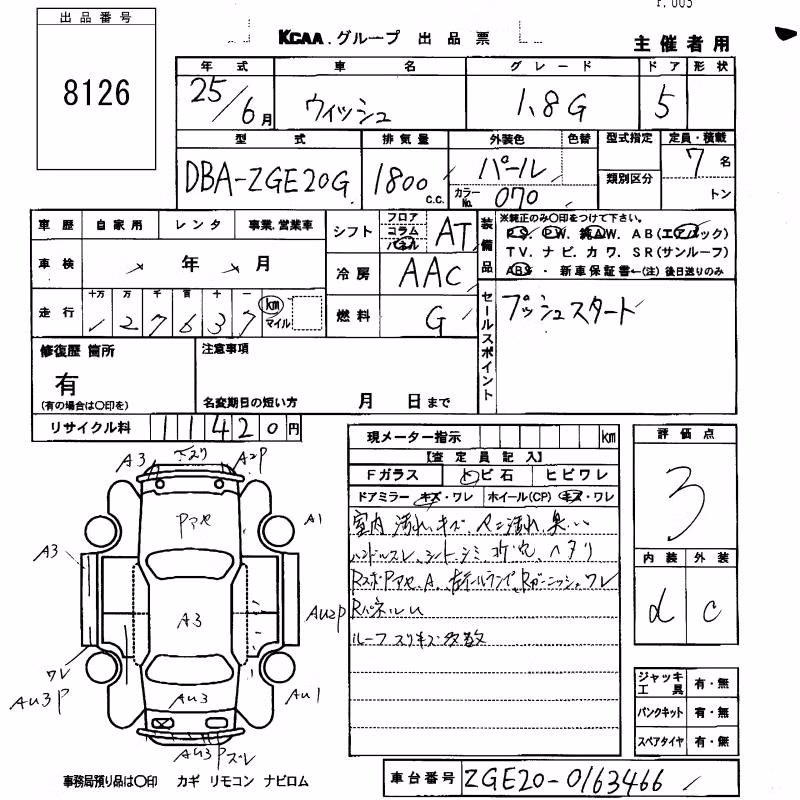 P. 003
出品番号
8126
KCAA.グループ 出品票
主催者用
年式 車名 グレード ドア 形状
25/6月 ウィッシュ 1.8G 5
型式 排気量 外装色 色替 型式指定 定員・積載
DBA-ZGE20G 1800 c.c. パール 7名
カラーNo. 070 類別区分 トン
車歴 自家用 レンタ 事業.営業車
シフト フロア コラム パネル AT
装備品 ※純正のみ〇印をつけて下さい。
P S. P W. 純 A W. A B (エアバック)
T V. ナ ビ. カ ワ. S R (サンルーフ)
A B S ・ 新車保証書←(注) 後日送りのみ
車検 年 月
冷房 AAC
走行 十万 万 千 百 十 一
1 2 7 6 3 7 km マイル
燃料 G
セールスポイント プッシュスタート
修復歴 箇所
有
(有の場合は〇印を)
注意事項
名変期日の短い方 月 日まで
リサイクル料 11420円
現メーター指示 km
【査定員記入】
Fガラス トビ石 ヒビワレ
ドアミラー キズ・ワレ ホイール(CP) キズ・ワレ
室内 汚れ、キズ、 汚れ、臭い
ハンドルスレ、シートシミ コゲ穴、ヘタリ
ルーフ スリキズ多数
評価点
3
内装 外装
d C
A3 A2P
A1
A3
A3
AU2P
ワレ
AU3P
AU3
AU1
AU3P ズレ
ジャッキ工具 有・無
パンクキット 有・無
スペアタイヤ 有・無
事務局預り品は〇印 カギ リモコン ナビロム
車台番号 ZGE20-0163466